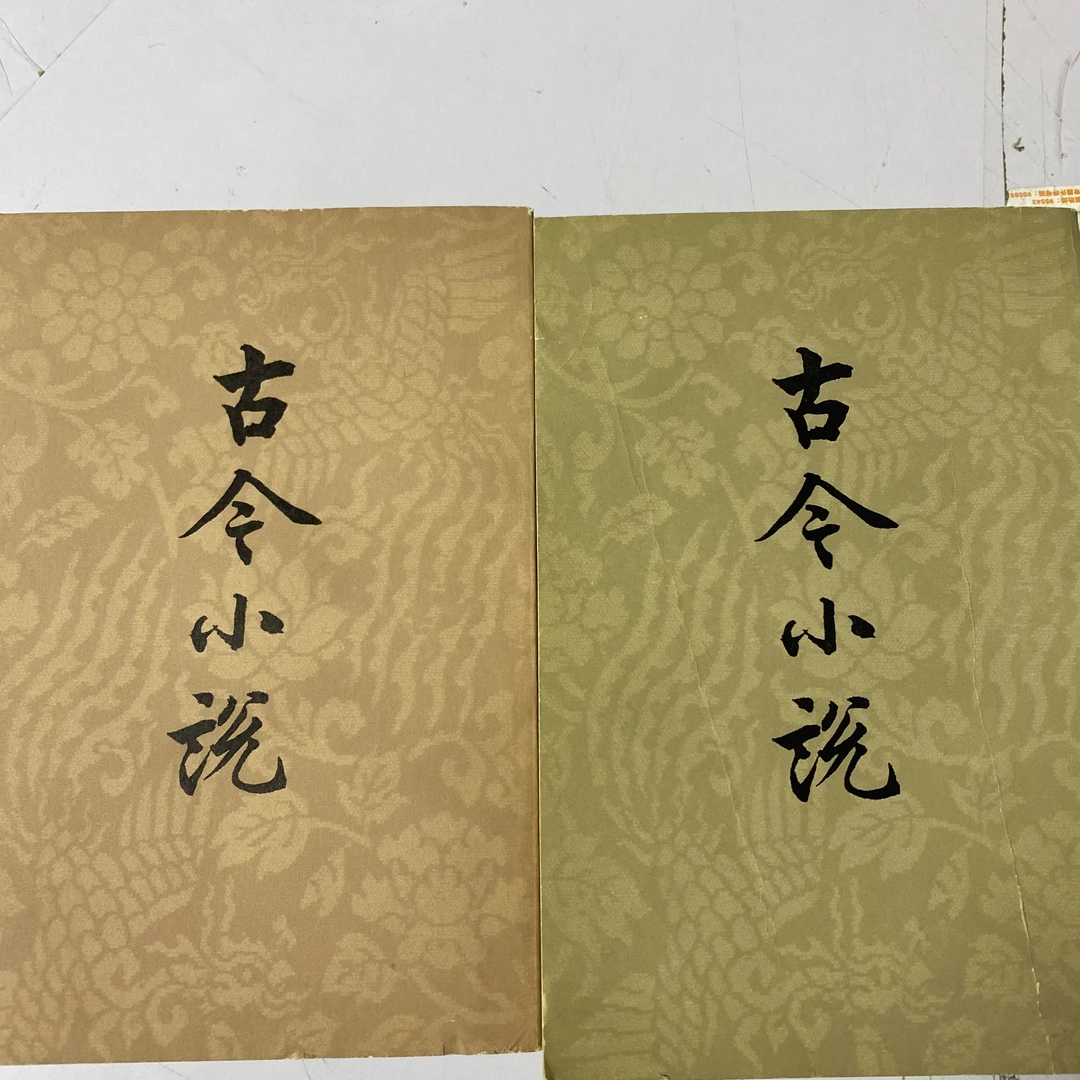 古今小説
古今小説